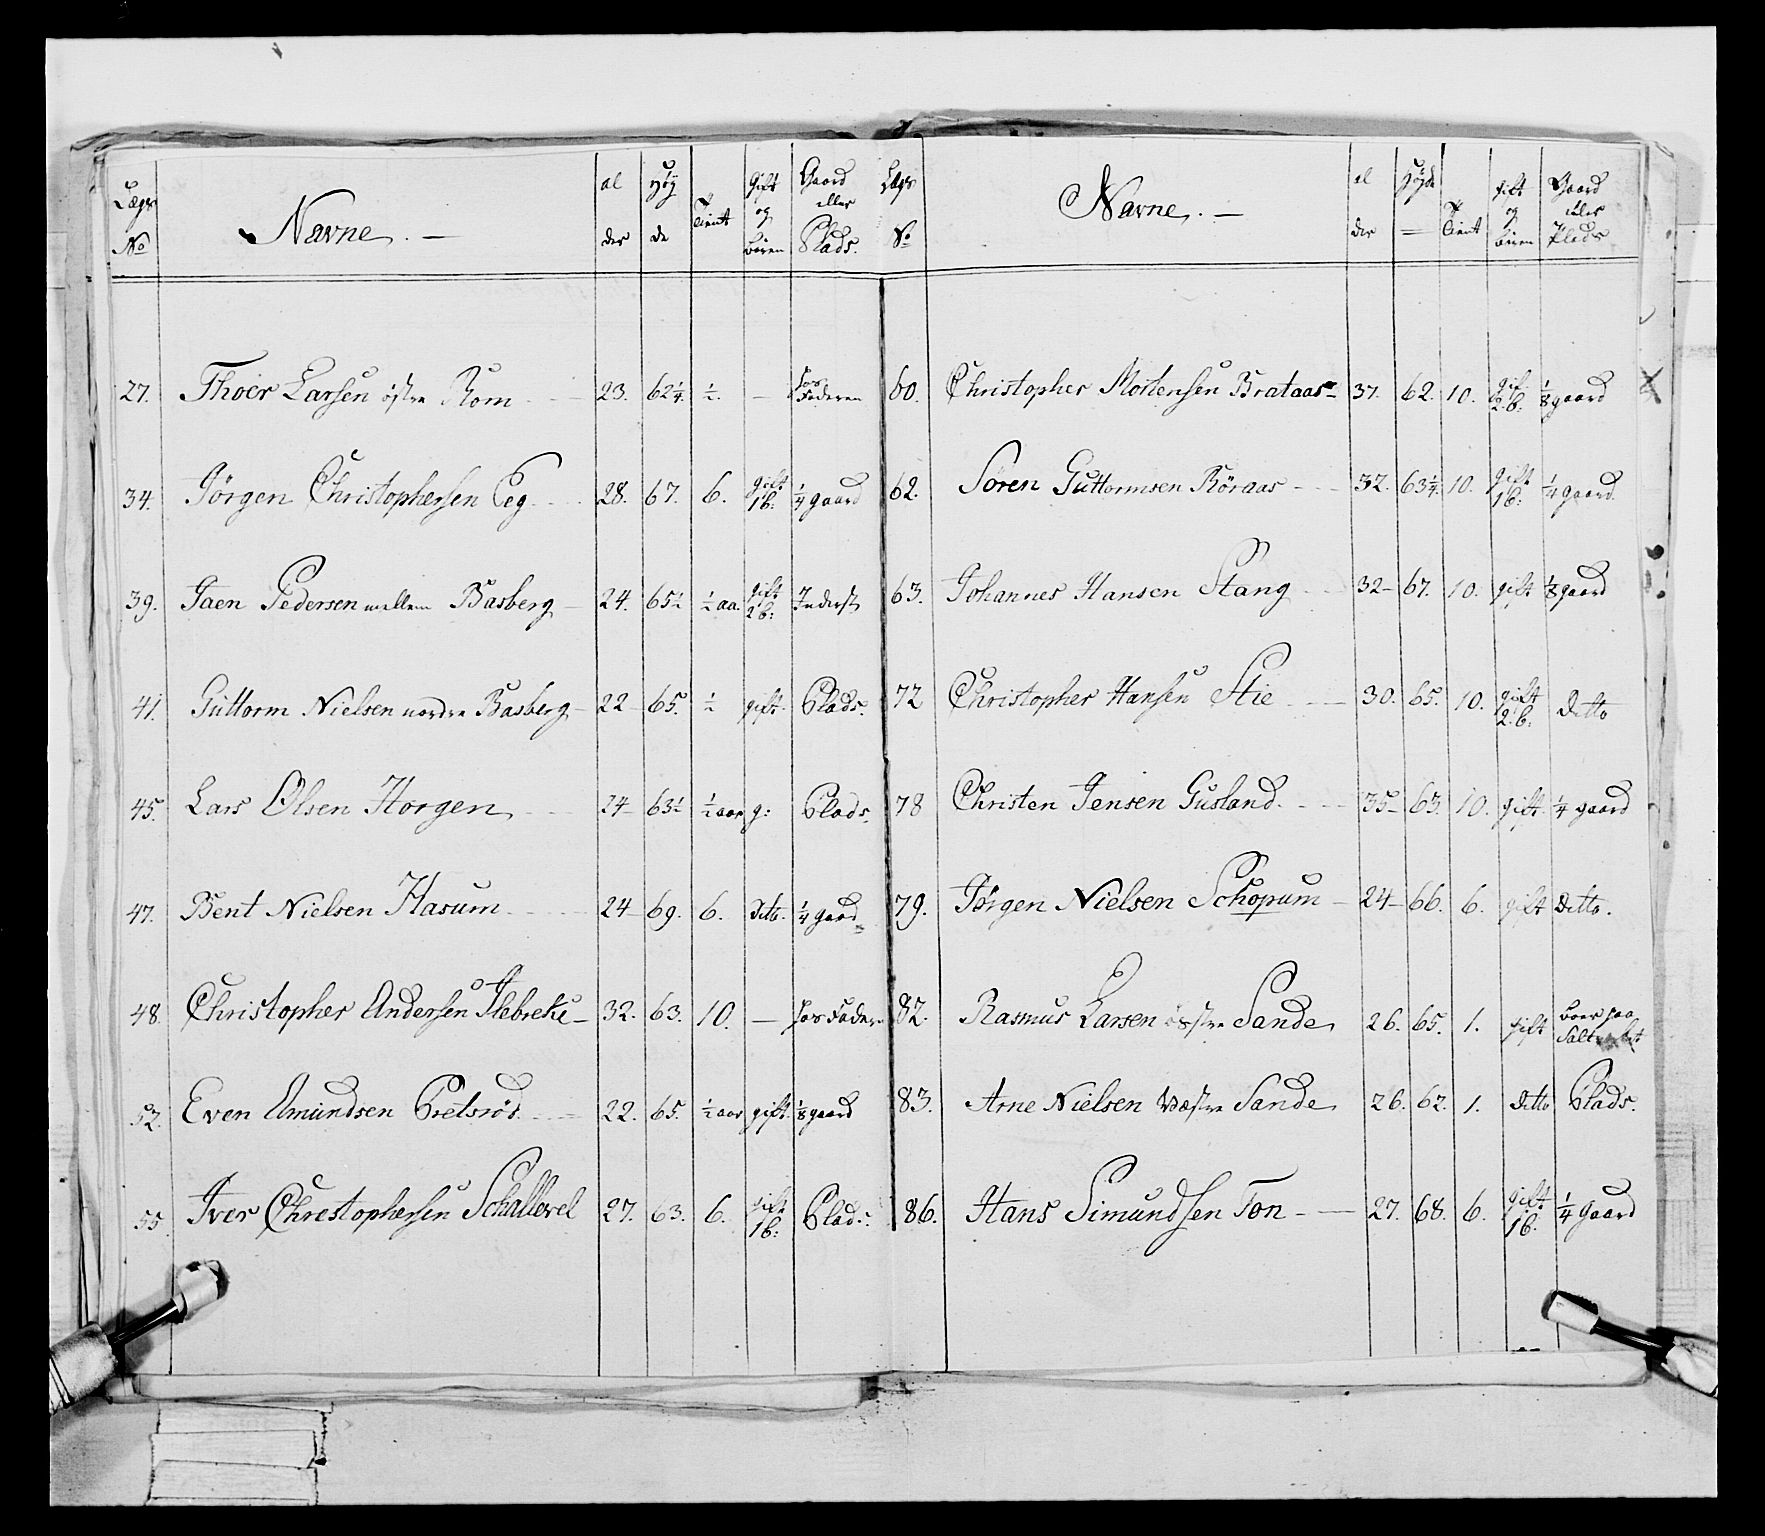 Lægs No Navne. — al der Høy de Tient Gift og börn Gaard eller Plads.
27. Thoer Larsen östre Rom 23. 62 1/4. 1/2. — hos Faderen
34. Jörgen Christophersen Eeg 28. 67. 6. gift 1 b: 1/4 gaard
39. Jaen Pedersen mellem Basberg 24. 65 1/2 1/2 aa. gift 2 b: Inderst
41. Guttorm Nielsen nordre Basberg 22 65. 1/2 gift. Plads.
45. Lars Olsen Horgen 24 63 1/2 1/2 aar g: Plads.
47. Bent Nielsen Hasum 24 69. 6. Ditto. 1/4 gaard
48. Christopher Andersen Ilebreke 32. 63. 10. — hos Fader
52. Even Amundsen Pretsröd 22. 65. 1/2 aar gift. 1/8 gaard
55. Iver Chrestophersen Schallevel 27. 63. 6. gift 1 b: Plads.
Lægs No Navne. — al der Höyde Tient gift og börn Gaard eller Plads
60. Christopher Mortensen Brataas 37. 62. 10. gift 2. b: 1/8 gaard
62. Sören Guttormsen Röraas 32. 63 1/4. 10. gift 1 b: 1/4 gaard.
63. Johannes Hansen Stang 32 67. 10. gift 1/8 gaard
72 Christopher Hansen Stie 30. 65. 10. gift 2. b: Ditto
78 Christen Jensen Gusland. 35 63. 10. gift 1/4 gaard
79. Jörgen Nielsen Schopum 24 66. 6. gift Ditto.
82. Rasmus Larsen östre Sande 26. 65. 1. gift boer paa
83. Arne Nielsen Væstre Sande 26. 62. 1. Ditto Plads.
86. Hans Simundsen Ton 27. 68. 6. gift 1 b. 1/4 Gaard